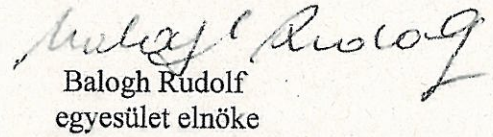 Balogh Rudolf
Balogh Rudolf
egyesület elnöke